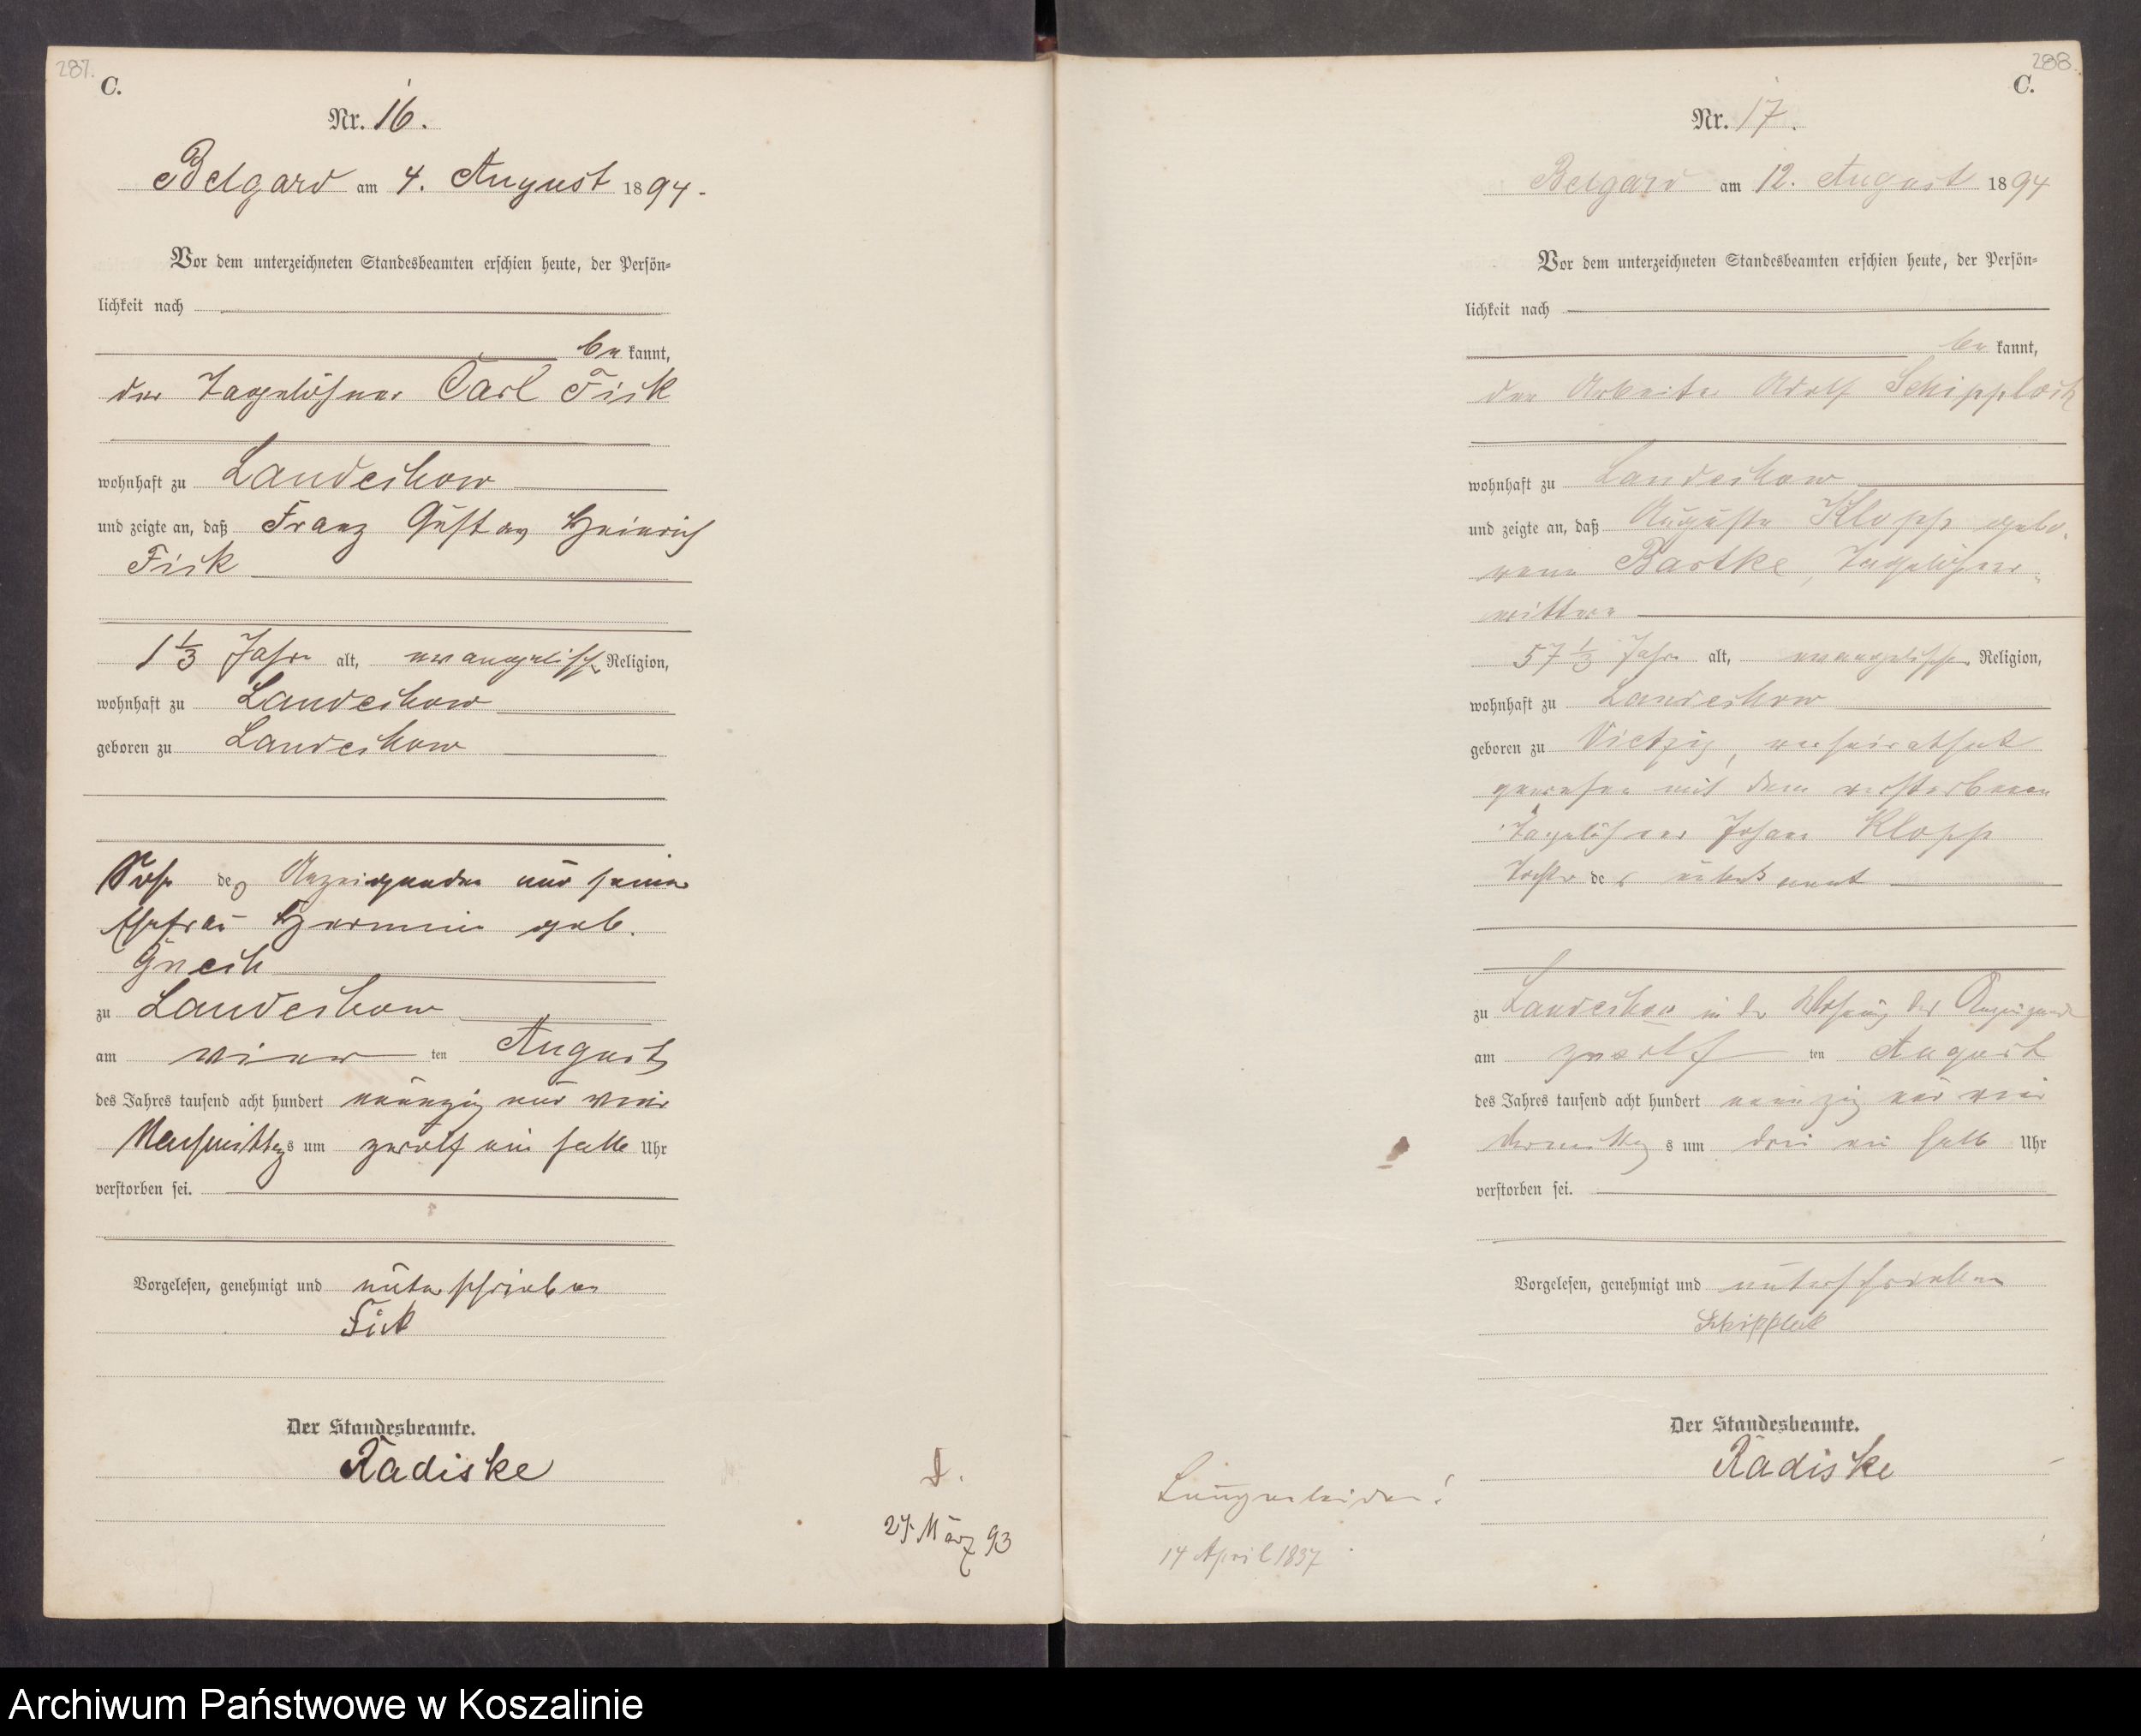 287.
C.
Nr. 16.
Belgard am 4. August 1894.
Vor dem unterzeichneten Standesbeamten erschien heute, der Persön-
lichkeit nach
be kannt,
der Tagelöhner Carl Fick
wohnhaft zu Landechow
und zeigte an, daß Franz Gustav Heinrich
Fick
1 1/3 Jahre alt, evangelischer Religion,
wohnhaft zu Landechow
geboren zu Landechow
Sohn des Anzeigenden und seiner
Ehefrau Hermine geb.
zu Landechow
am vier ten August
des Jahres tausend acht hundert neunzig und vier
Nachmittags um zwölf ein halb Uhr
verstorben sei.
Vorgelesen, genehmigt und unterschrieben
Fick
Der Standesbeamte.
Radiske
März 93
288.
C.
Nr. 17.
Belgard am 12. August 1894
Vor dem unterzeichneten Standesbeamten erschien heute, der Persön-
lichkeit nach
be kannt,
der Arbeiter Adolf Schipplock
wohnhaft zu Landechow
und zeigte an, daß Auguste Klopp gebo-
rene Bartke, Tagelöhner-
wittwe
57 1/3 Jahre alt, evangelischer Religion,
wohnhaft zu Landechow
geboren zu Vietzig, verheirathet
gewesen mit dem verstorbenen
Tagelöhner Johann Klopp
Tochter der unbekannt
zu Landechow in der Wohnung des Anzeigenden
am zwölf ten August
des Jahres tausend acht hundert neunzig und vier
Vormittags um drei ein halb Uhr
verstorben sei.
Vorgelesen, genehmigt und unterschrieben
Schipplock
Der Standesbeamte.
Radiske
Lungenleiden!
14 April 1837
Archiwum Państwowe w Koszalinie